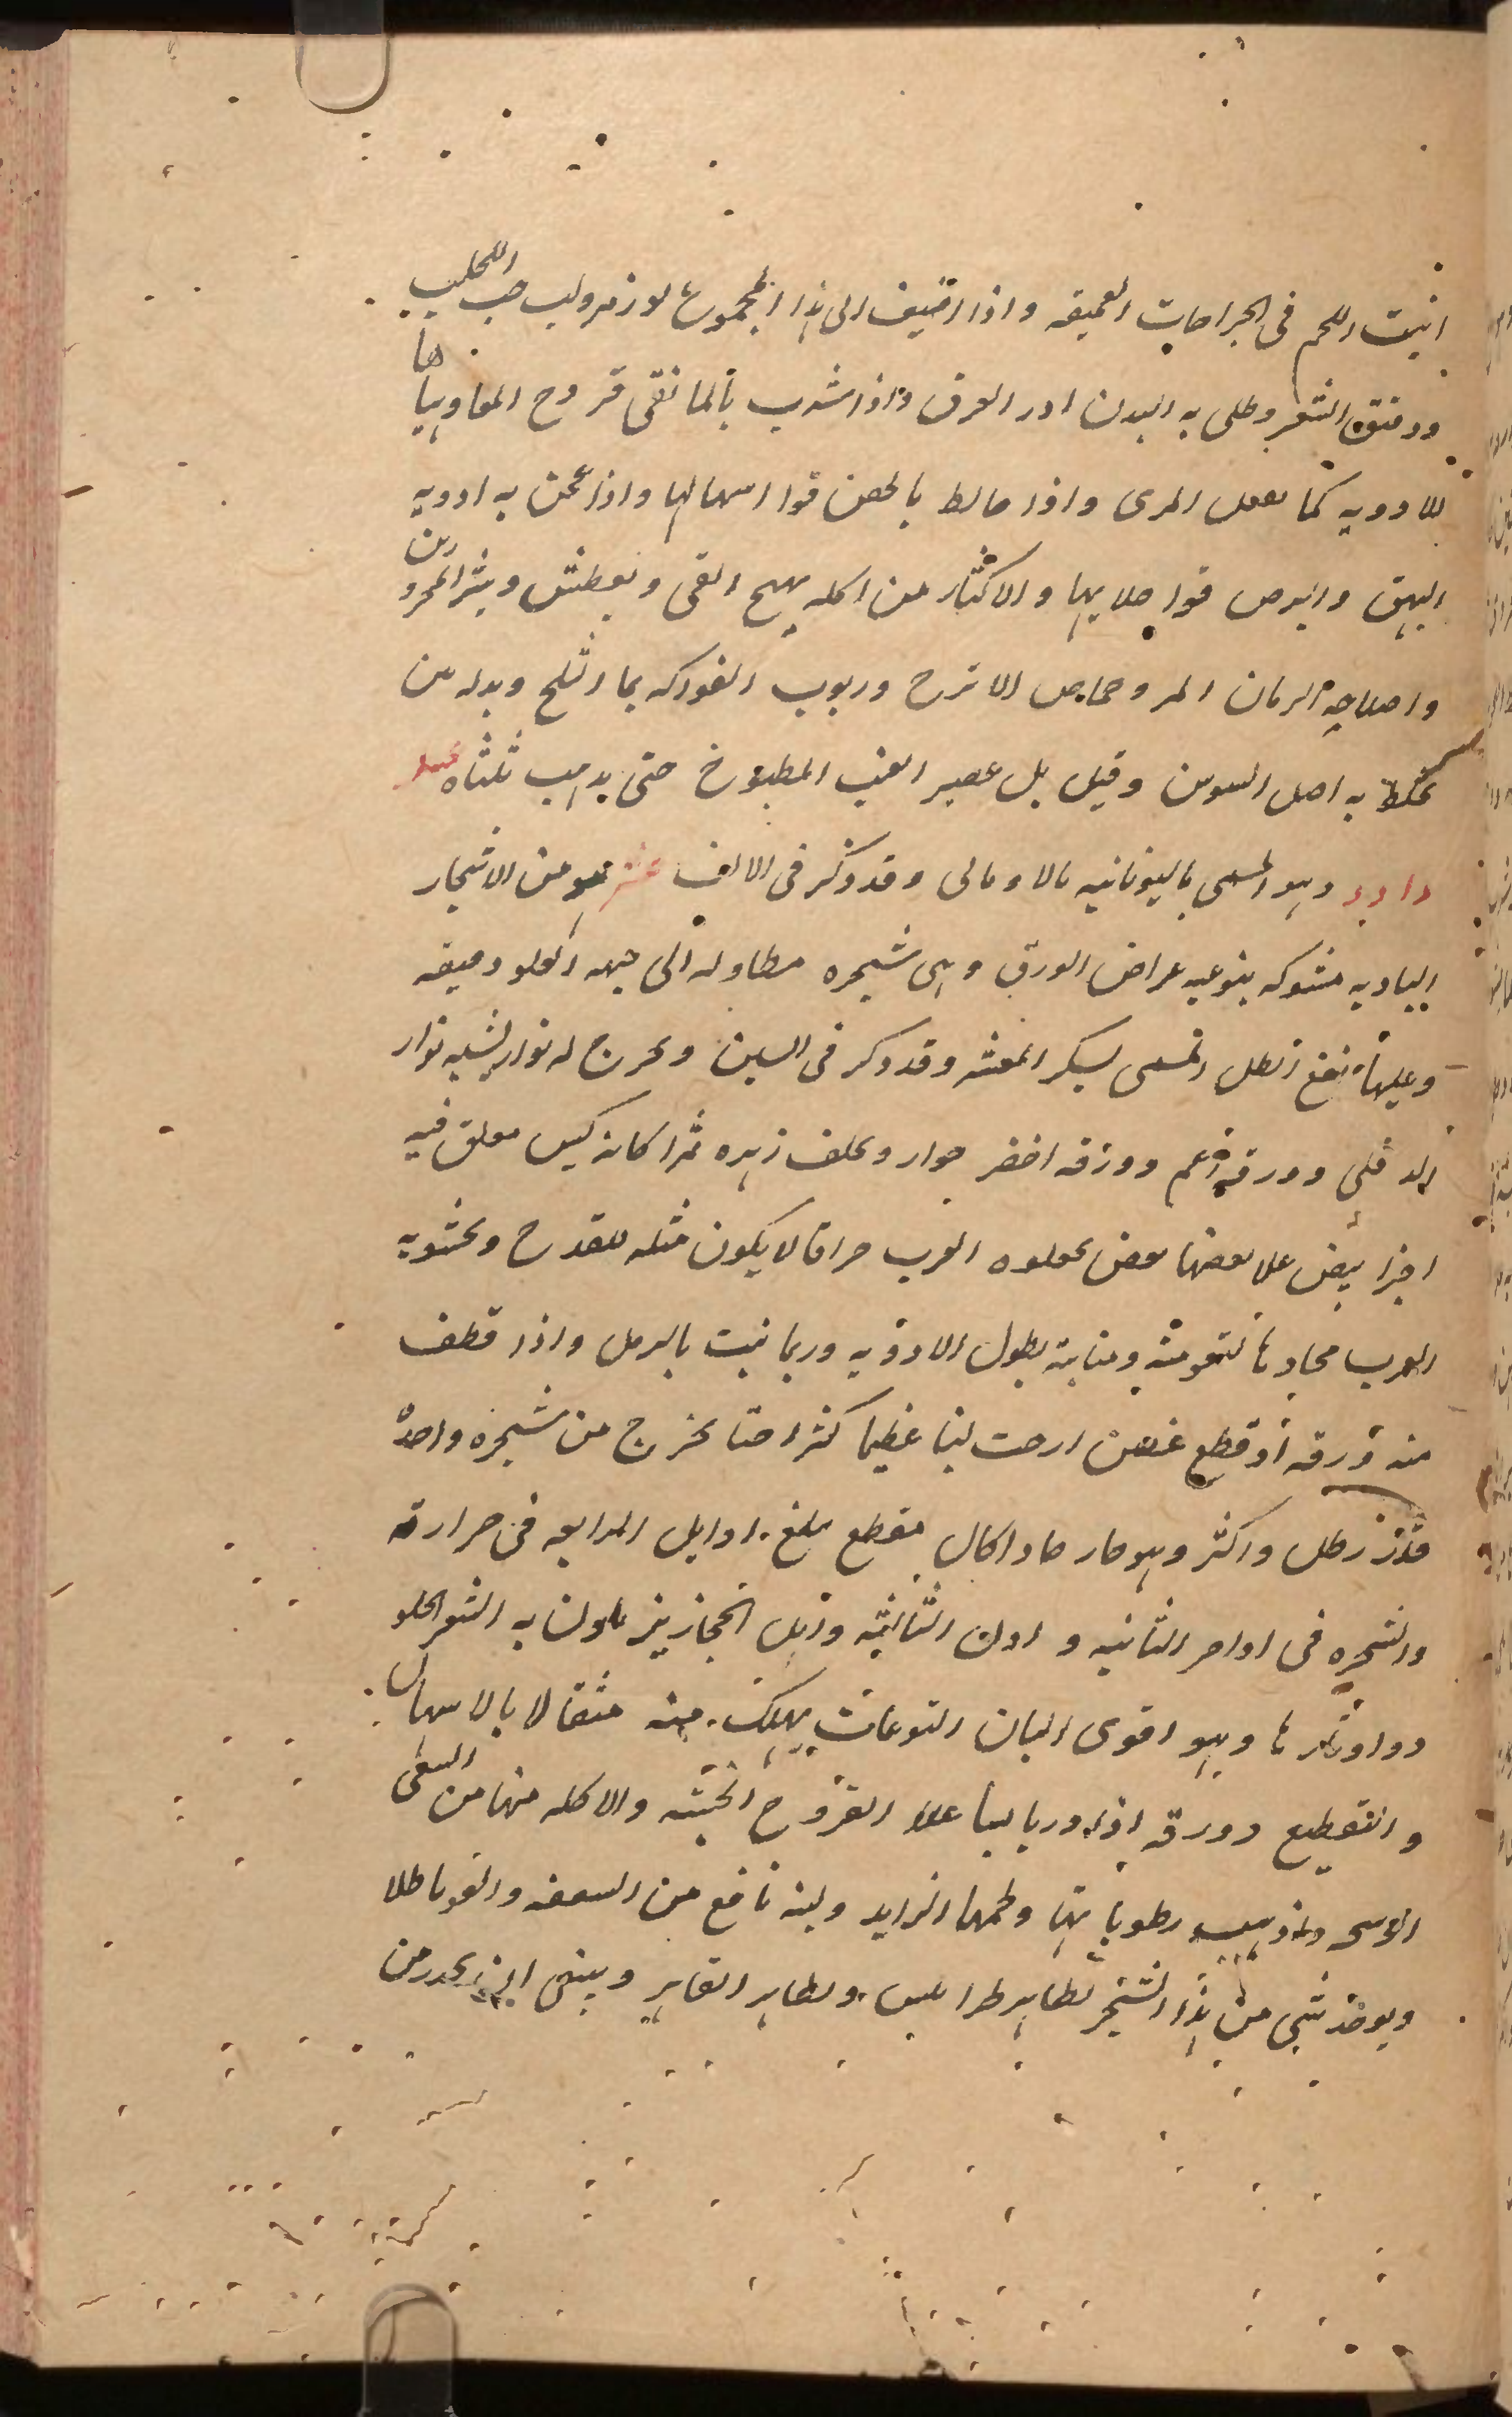 انبت اللحم فى الجراحات العميقه واذا اضيف الى هذا المجموع لوز مر ولب حب المحلب
ودقيق الشعير وطلى به البدن ادر العرق واذا شرب بالما نقى قروح المعا وهياها
للادويه كما يفعل المرى واذا خالط بالحقن قوا اسهالها واذا عجن به ادويه
البهق والبرص قوا جلايها والاكثار من اكله يهيج القى ويعطش ويثر المحرورين
واصلاحه الرمان المر وحماض الاترج وربوب الفواكه بما الثلج وبدله من
يخلط به اصل السوس وقيل بل عصير العنب المطبوخ حتى يذهب ثلثاه عسل
داود وهو المسمى باليونانيه مالاومالى وقد ذكر فى الالف عشر هو من الاشجار
الباديه مشوكه ينوعيه عراض الورق وهى شجره مطاوله الى جهه العلو دميقه
وعليها يقع الطل المسمى بسكر العشر وقد ذكر فى السين ويخرج له نوار يشبه نوار
الدفلى وورقه انعم وورقه اخضر خوار ويخلف زهره ثمرا كانه كيس معلق فيه
اجزا بيض على بعضها بعض يجعلوه العرب حراقا لا يكون مثله للقدح ويحشو به
العرب مخادها لنعومته ومنابته بطول الاوديه وربما نبت بالرمل واذا قطف
منه ورقه او قطع غصن ارخت لبنا عظيما كثيرا حتا يخرج من شجره واحده
قدر رطل واكثر وهو حار حاد اكال مقطع بلغ اوايل الرابعه فى حرارته
والشجره فى اواخر الثانيه واول الثالثه واهل الحجاز يزيلون به الشعر الجلود
واوبارها وهو اقوى البان اليتوعات يهلك منه مثقالا بالاسهال
والتقطيع وورقه اذا ذر يابسا على القروح الخبيثه والاكله منها من السعى
الوسخ واذهب رطوباتها ولحمها الزايد ولبنه نافع من السعفه والقوبا طلا
ويوخذ شى من هذا الشجر بظاهر طرابلس وبظاهر القاهره وينبغى ان يحذر من